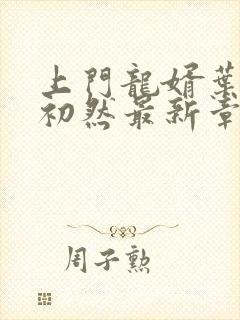 上門龍婿葉
初然最新章
周子勲